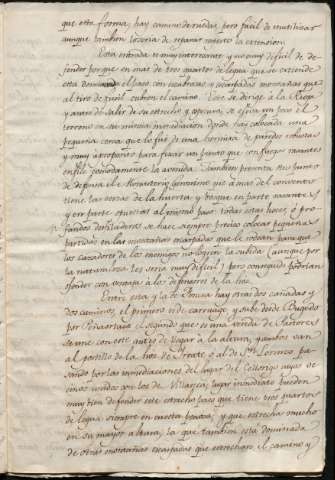 que esta forma, hay camino de ruedas, pero facil de inutilizar
aunque tambien lo seria de reparar
Esta entrada es muy interesante y no muy dificil de de-
fender porque en mas de tres quartos de legua que se extiende
esta dominado el paso con escabrosas y escarpadas montañas que
al tiro de fusil cubren el camino. Este se dirige á la Rioja
y antes de salir de su estrecho y aspereza se eleva un poco el
terreno en su misma inmediacion donde hay colocada una
pequeña cerca que lo fué de una de paredes robustas
y muy á proposito para fixar un punto que con fuegos rasantes
enfile la avenida. Tambien presenta este punto
de defensa el Monasterio que á mas del convento
tiene las cercas de la huerta y bosque en parte rasantes
y en parte al mismo paso: todas estas hoces, ó pro-
fundos desfiladeros se hace siempre preciso colocar pequeñas
partidas en las montañas escarpadas que le rodean para que
los cazadores de los enemigos no logren la subida (aunque por
la naturaleza les seria muy dificil) pero conseguida podrian
ofender con ventaja á los defensores de la hoz.
Entre esta y la de Foncea hay otras dos cañadas y
dos caminos, el primero es de carruage y sube desde Bugedo
por Peñacerrada el segundo que es una vereda de Pastores
se une con este antes de llegar á la altura, y ambos van
al portillo de la hoz de Foncea ó al de Sn. Lorenzo pa-
sando por las inmediaciones del lugar del Cellorigo cuyos ve-
cinos unidos con los de Villaseca, lugar inmediato pueden
muy bien defender este estrecho paso que tiene tres quartos
de legua siempre en cuesta penosa; y que estrecha mucho
en su mayor altura, la que tambien está dominada
de otras montañas escarpadas que estrechan el camino y